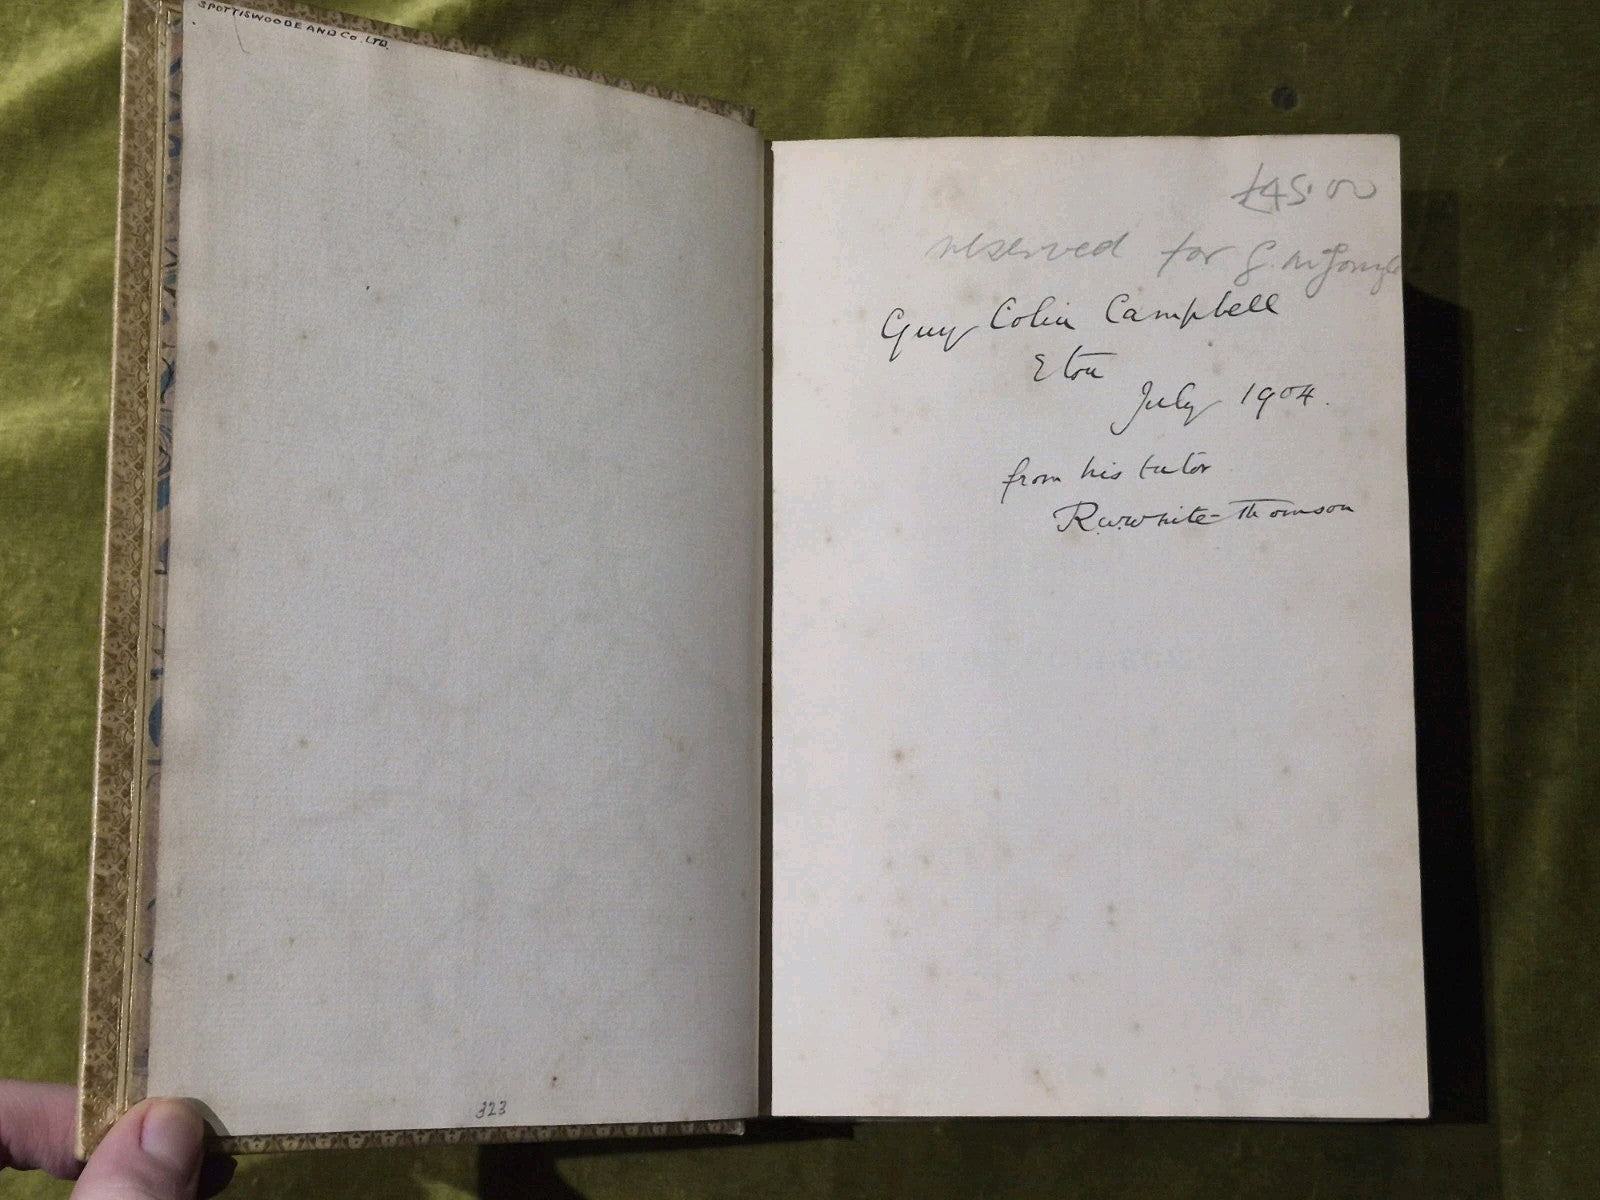 SPOTTISWOODE AND CO. LTD.
£45.00
reserved for G.
Guy Colin Campbell
Eton
July 1904.
from his tutor
R.W. White-Thomson
323